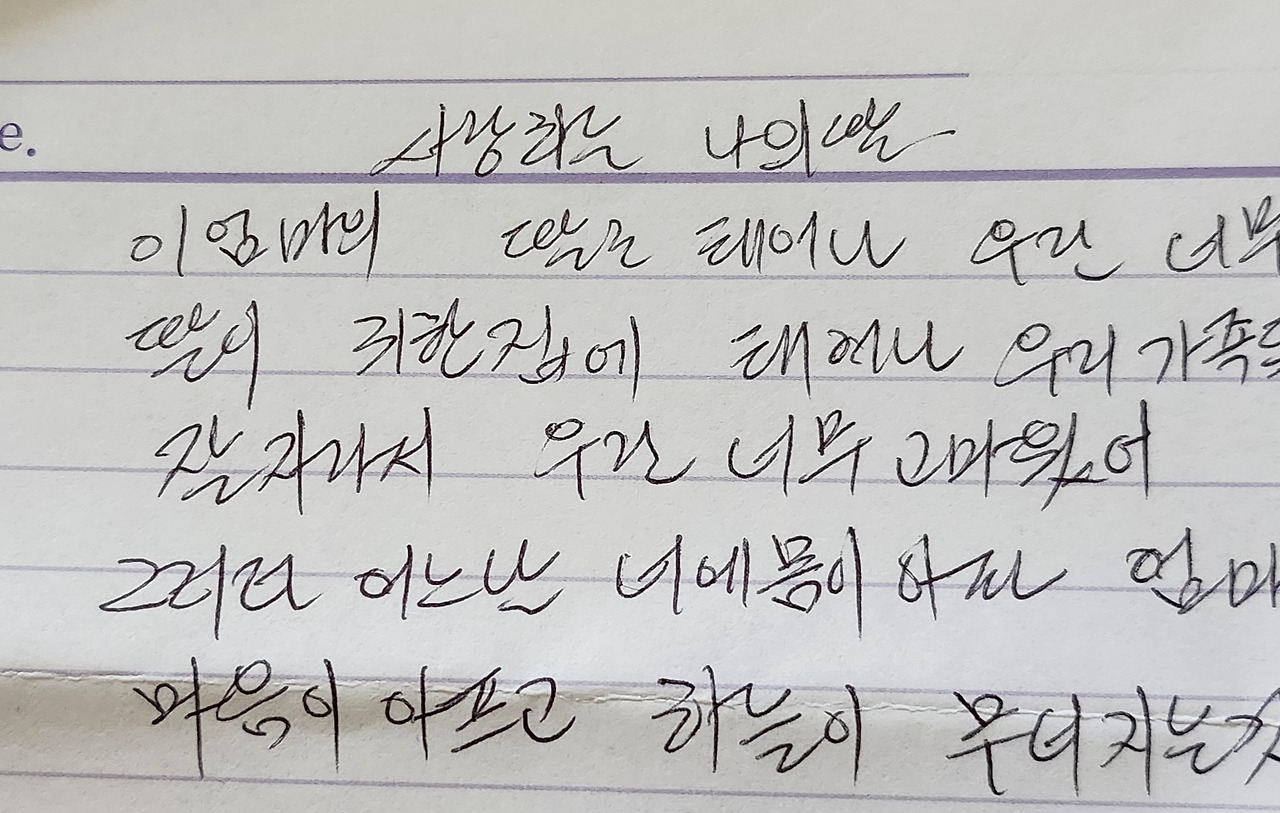 e.
사랑하는 나의딸
이엄마의 딸로 태어나 우린 너무
딸이 귀한집에 태어나 우리가족
잘자라서 우린 너무 고마웠어
그러다 어느날 너에몸이 아파 엄마
마음이 아프고 하늘이 무너지는